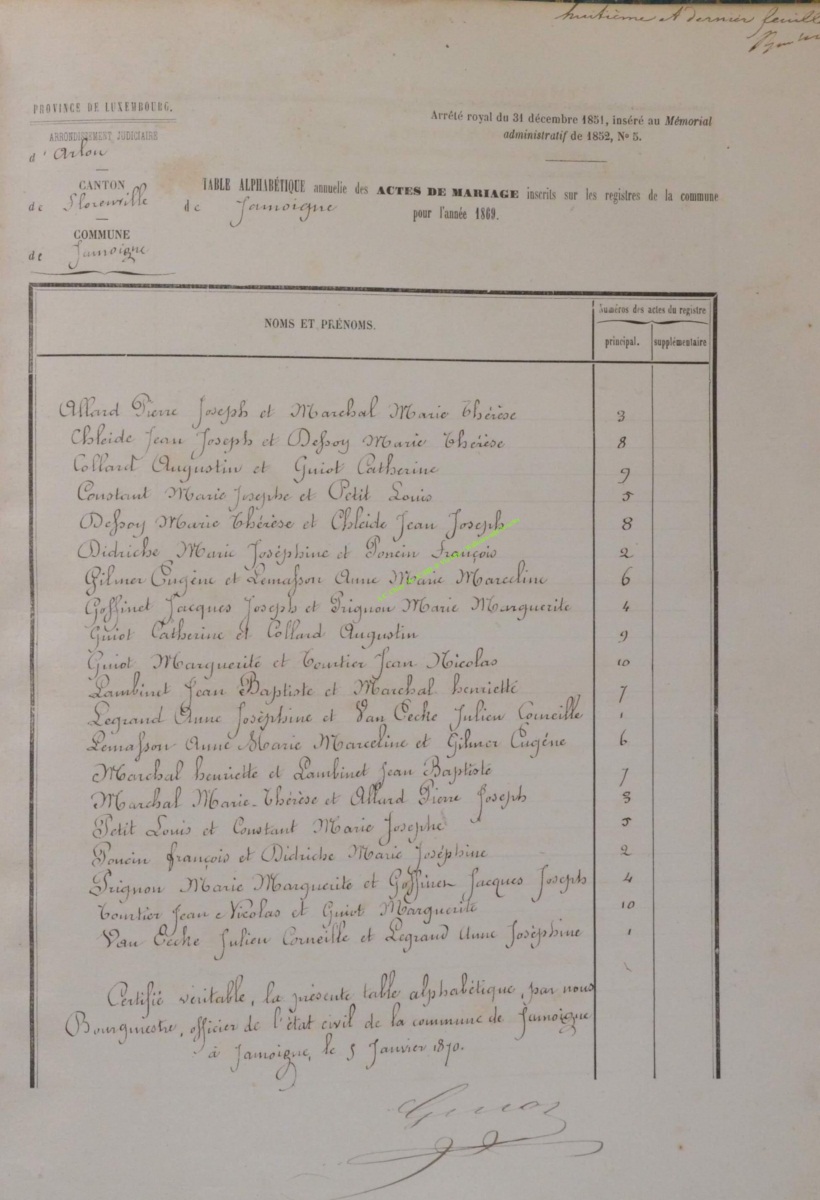 huitième et dernier feuille
PROVINCE DE LUXEMBOURG.
ARRONDISSEMENT JUDICIAIRE
d'Arlon
CANTON
de Florenville
COMMUNE
de Jamoigne
Arrêté royal du 31 décembre 1851, inséré au Mémorial
administratif de 1852, No 5.
TABLE ALPHABÉTIQUE annuelle des ACTES DE MARIAGE inscrits sur les registres de la commune
de Jamoigne pour l'année 1869.
NOMS ET PRÉNOMS.
Numéros des actes du registre
principal. supplémentaire
Allard Pierre Joseph et Marchal Marie Thérèse 3
Chleide Jean Joseph et Dessoy Marie Thérèse 8
Collard Augustin et Guiot Catherine 9
Constant Marie Josephe et Petit Louis 5
Dessoy Marie Thérèse et Chleide Jean Joseph 8
Didriche Marie Joséphine et Poncin François 2
Gilmer Eugéne et Lemasson Anne Marie Marceline 6
Goffinet Jacques Joseph et Prignon Marie Marguerite 4
Guiot Catherine et Collard Augustin 9
Guiot Marguerite et Tourtier Jean Nicolas 10
Lambinet Jean Baptiste et Marchal henriette 7
Legrand Anne Joséphine et Van Eecke Julien Corneille 1
Lemasson Anne Marie Marceline et Gilmer Eugéne 6
Marchal henriette et Lambinet Jean Baptiste 7
Marchal Marie-Thérèse et Allard Pierre Joseph 3
Petit Louis et Constant Marie Josephe 5
Poncin françois et Didriche Marie Joséphine 2
Prignon Marie Marguerite et Goffinet Jacques Joseph 4
Tourtier Jean Nicolas et Guiot Marguerite 10
Van Eecke Julien Corneille et Legrand Anne Joséphine 1
Certifié véritable, la présente table alphabétique, par nous
Bourgmestre, officier de l'état civil de la commune de Jamoigne
à Jamoigne, le 5 Janvier 1870.